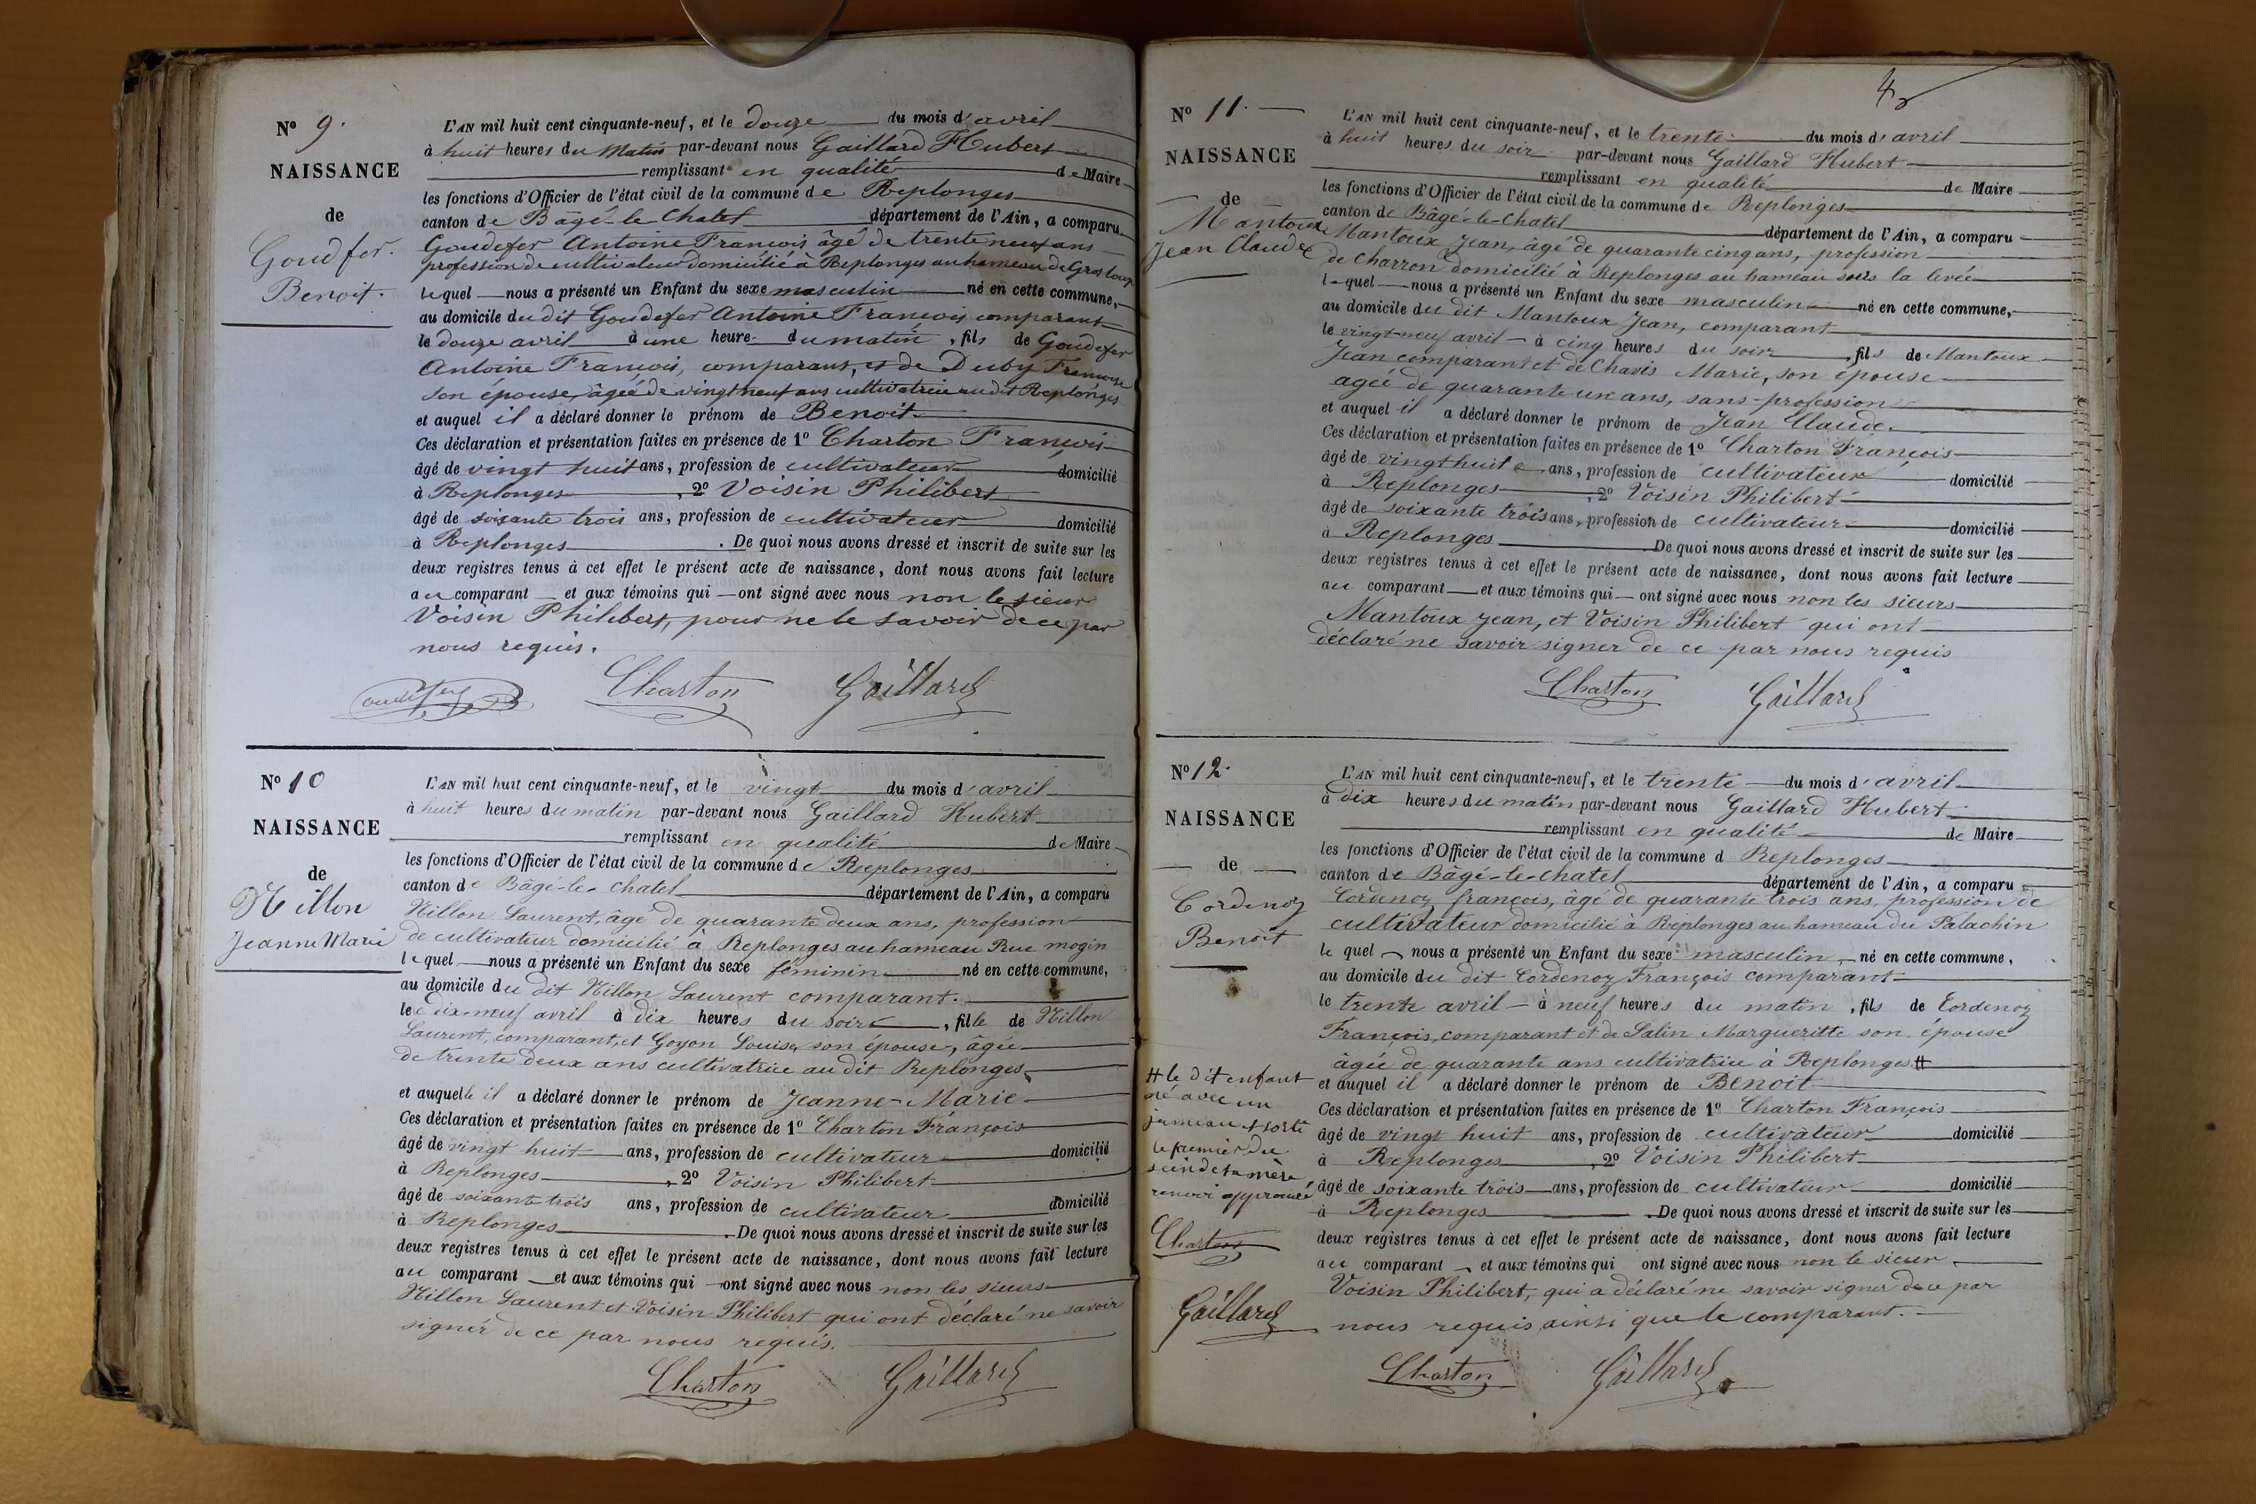 N° 9.
NAISSANCE
de
Goudfer.
Benoit.
L'AN mil huit cent cinquante-neuf, et le douze du mois d'avril
à huit heures du matin par-devant nous Gaillard Hubert
remplissant en qualité de Maire
les fonctions d'Officier de l'état civil de la commune de Replonges
canton de Bâgé-le-Chatel département de l'Ain, a comparu
Goudefer Antoine François âgé de trente neuf ans
profession de cultivateur domicilié à Replonges au hameau de Gros loup
lequel nous a présenté un Enfant du sexe masculin né en cette commune,
au domicile du dit Goudefer Antoine François comparant
le douze avril à une heure du matin, fils de Goudefer
Antoine François, comparant, et de Duby Francoise
son épouse, âgée de vingt neuf ans cultivatrice au dit Replonges
et auquel il a déclaré donner le prénom de Benoit
Ces déclaration et présentation faites en présence de 1° Charton François
âgé de vingt huit ans, profession de cultivateur domicilié
à Replonges, 2° Voisin Philibert
âgé de soixante trois ans, profession de cultivateur domicilié
à Replonges. De quoi nous avons dressé et inscrit de suite sur les
deux registres tenus à cet effet le présent acte de naissance, dont nous avons fait lecture
au comparant et aux témoins qui ont signé avec nous non le sieur
Voisin Philibert, pour ne le savoir de ce par
nous requis.
Charton Gaillard
N° 10
NAISSANCE
de
Nillon
Jeanne Marie
L'AN mil huit cent cinquante-neuf, et le vingt du mois d'avril
à huit heures du matin par-devant nous Gaillard Hubert
remplissant en qualité de Maire
les fonctions d'Officier de l'état civil de la commune de Replonges
canton de Bâgé-le-chatel département de l'Ain, a comparu
Nillon Laurent, âgé de quarante deux ans, profession
de cultivateur domicilié à Replonges au hameau Rue mogin
lequel nous a présenté un Enfant du sexe féminin né en cette commune,
au domicile du dit Nillon Laurent comparant.
le dix-neuf avril à dix heures du soir, fille de Nillon
Laurent, comparant, et Goyon Louise, son épouse, âgée
de trente deux ans cultivatrice au dit Replonges,
et auquelle il a déclaré donner le prénom de Jeanne-Marie
Ces déclaration et présentation faites en présence de 1° Charton François
âgé de vingt huit ans, profession de cultivateur domicilié
à Replonges, 2° Voisin Philibert
âgé de soixante trois ans, profession de cultivateur domicilié
à Replonges. De quoi nous avons dressé et inscrit de suite sur les
deux registres tenus à cet effet le présent acte de naissance, dont nous avons fait lecture
au comparant et aux témoins qui ont signé avec nous non les sieurs
Nillon Laurent et Voisin Philibert qui ont déclaré ne savoir
signer de ce par nous requis.
Charton Gaillard
N° 11.
NAISSANCE
de
Mantoux
Jean Claude
L'AN mil huit cent cinquante-neuf, et le trente du mois d'avril
à huit heures du soir par-devant nous Gaillard Hubert
remplissant en qualité de Maire
les fonctions d'Officier de l'état civil de la commune de Replonges
canton de Bâgé-le-chatel département de l'Ain, a comparu
Mantoux Jean, âgé de quarante cinq ans, profession
de charron domicilié à Replonges au hameau sous la levée
lequel nous a présenté un Enfant du sexe masculin né en cette commune,
au domicile du dit Mantoux Jean, comparant
le vingt-neuf avril à cinq heures du soir, fils de Mantoux
Jean comparant et de Chavis Marie, son épouse
agée de quarante un ans, sans profession
et auquel il a déclaré donner le prénom de Jean Claude.
Ces déclaration et présentation faites en présence de 1° Charton François
âgé de vingt huit ans, profession de cultivateur domicilié
à Replonges, 2° Voisin Philibert
âgé de soixante trois ans, profession de cultivateur domicilié
à Replonges De quoi nous avons dressé et inscrit de suite sur les
deux registres tenus à cet effet le présent acte de naissance, dont nous avons fait lecture
au comparant et aux témoins qui ont signé avec nous non les sieurs
Mantoux Jean, et Voisin Philibert qui ont
déclaré ne savoir signer de ce par nous requis
Charton Gaillard
N° 12.
NAISSANCE
de
Cordenoz
Benoit
L'AN mil huit cent cinquante-neuf, et le trente du mois d'avril
à dix heures du matin par-devant nous Gaillard Hubert
remplissant en qualité de Maire
les fonctions d'Officier de l'état civil de la commune d Replonges
canton de Bâgé-le-chatel département de l'Ain, a comparu
Cordenoz françois, âgé de quarante trois ans, profession de
cultivateur domicilié à Replonges au hameau du Palachin
lequel nous a présenté un Enfant du sexe masculin né en cette commune,
au domicile du dit Cordenoz François comparant
le trente avril à neuf heures du matin, fils de Cordenoz
François, comparant et de Salin Margueritte son épouse
âgée de quarante ans cultivatrice à Replonges #
et auquel il a déclaré donner le prénom de Benoit
Ces déclaration et présentation faites en présence de 1° Charton François
âgé de vingt huit ans, profession de cultivateur domicilié
à Replonges, 2° Voisin Philibert
âgé de soixante trois ans, profession de cultivateur domicilié
à Replonges. De quoi nous avons dressé et inscrit de suite sur les
deux registres tenus à cet effet le présent acte de naissance, dont nous avons fait lecture
au comparant et aux témoins qui ont signé avec nous non le sieur
Voisin Philibert, qui a déclaré ne savoir signer de ce par
nous requis ainsi que le comparant.
Charton Gaillard
# le dit enfant
né avec un
jumeau sorti
le premier du
sein de sa mère
renvoi approuvé
Charton
Gaillard